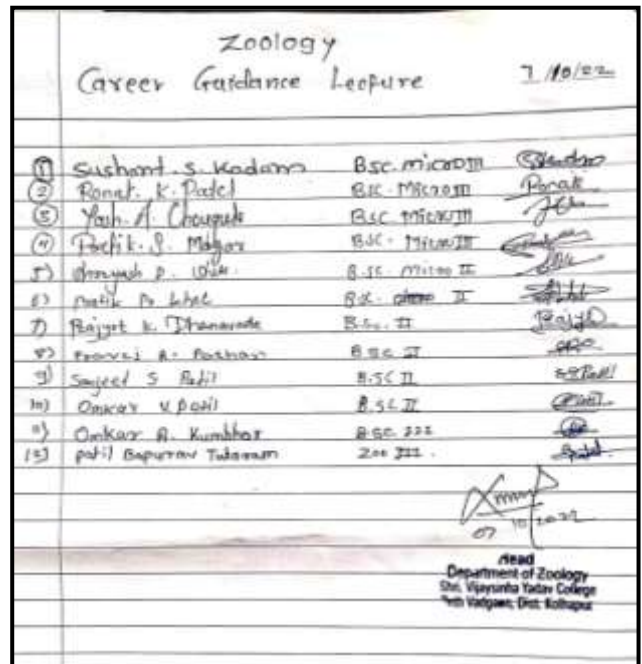 Zoology
Career Guidance Lecture 7/10/22
① Sushant. S. Kadam Bsc. micro III
② Ronak. K. Patel Bsc. Micro III
③ Yash. A. Chougule Bsc Micro III
④ Pratik. S. Magar Bsc. Micro III
5) P. B.sc micro II
6) Pratik B.sc. II
7) K. Dhanavade B.sc. II
8) A. Pathan B.sc II
9) S Patil B.sc II
10) Omkar V. Patil B.sc II
11) Omkar A. Kumbhar B.sc. III
12) patil Bapurrav Tukaram Zoo III.
07/10/2022
Head
Department of Zoology
Shri. Vijaysinha Yadav College
Peth Vadgaon, Dist. Kolhapur